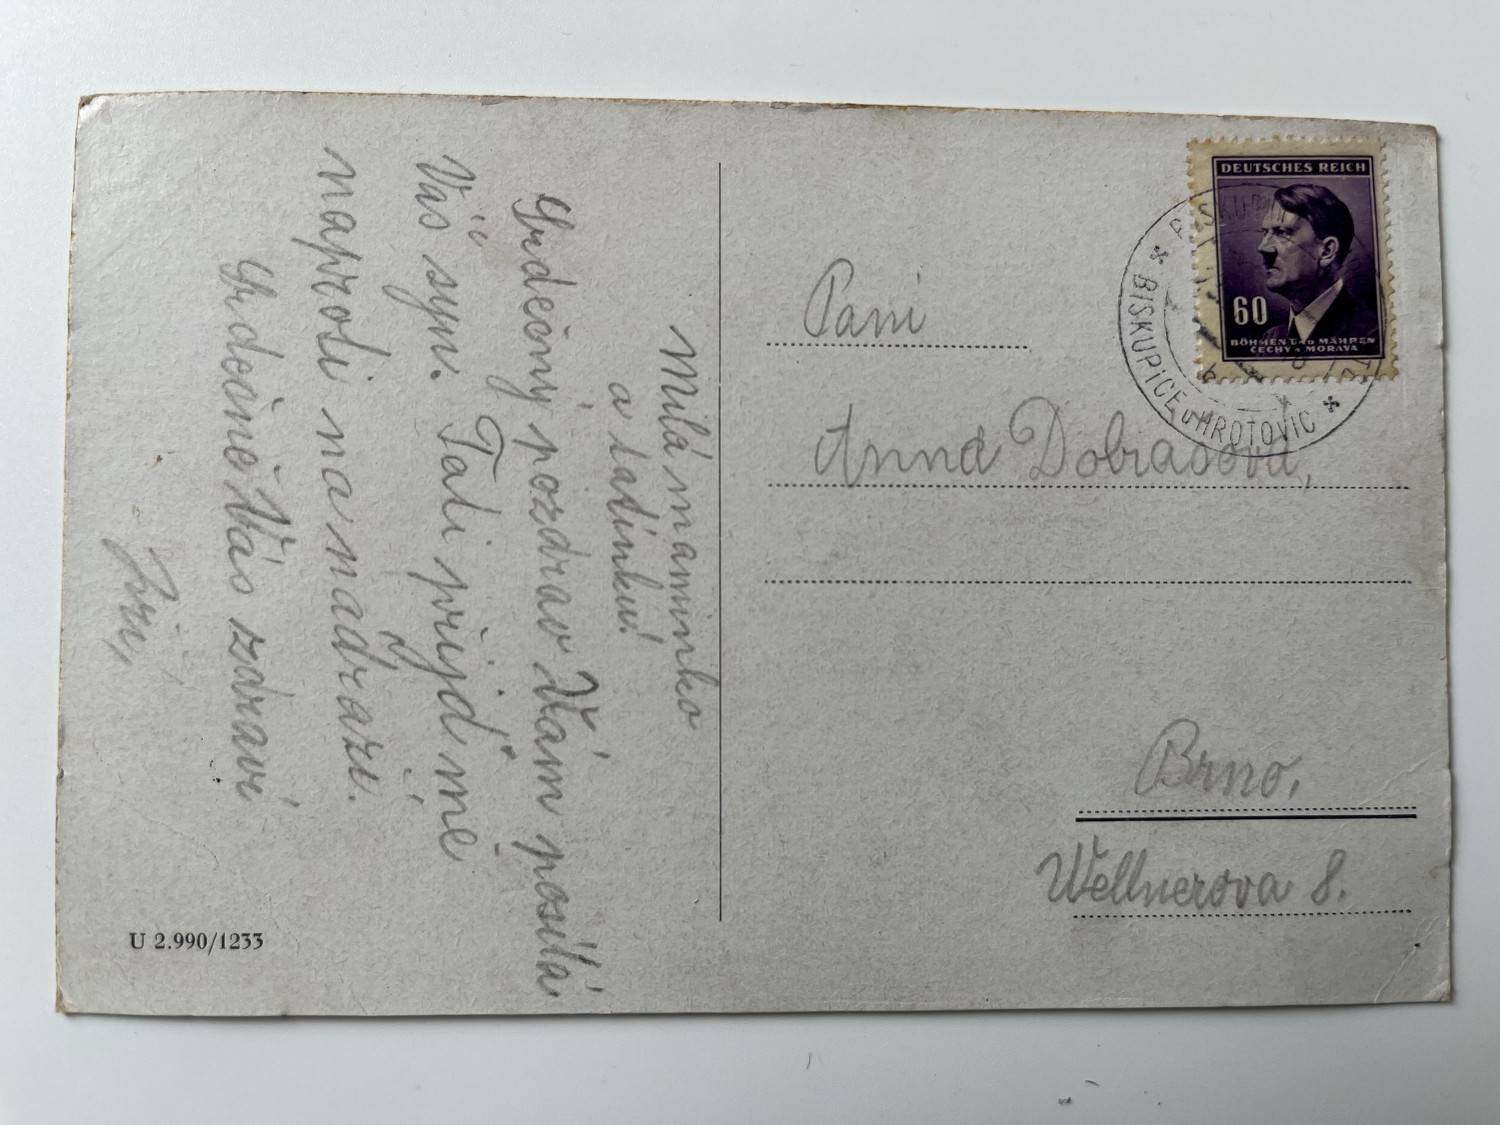 Milá maminko
a tatínku!
Srdečný pozdrav Vám posílá
Váš syn. Tati přijď mě
naproti na nádraží.
Srdečně Vás zdraví
Jiří,
U 2.990/1233
DEUTSCHES REICH
60
BÖHMEN UND MÄHREN
ČECHY A MORAVA
BISKUPICE U HROTOVIC
Paní
Anna
Brno,
Wellnerova 8.